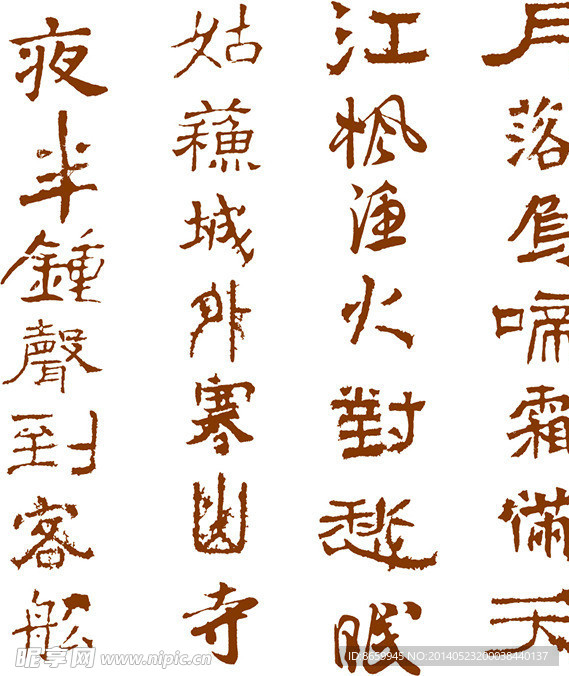 月落烏啼霜滿天
江楓漁火對愁眠
姑蘓城外寒山寺
夜半鍾聲到客船
昵享网 www.nipic.cn
ID:8659945 NO:20140523200038440137